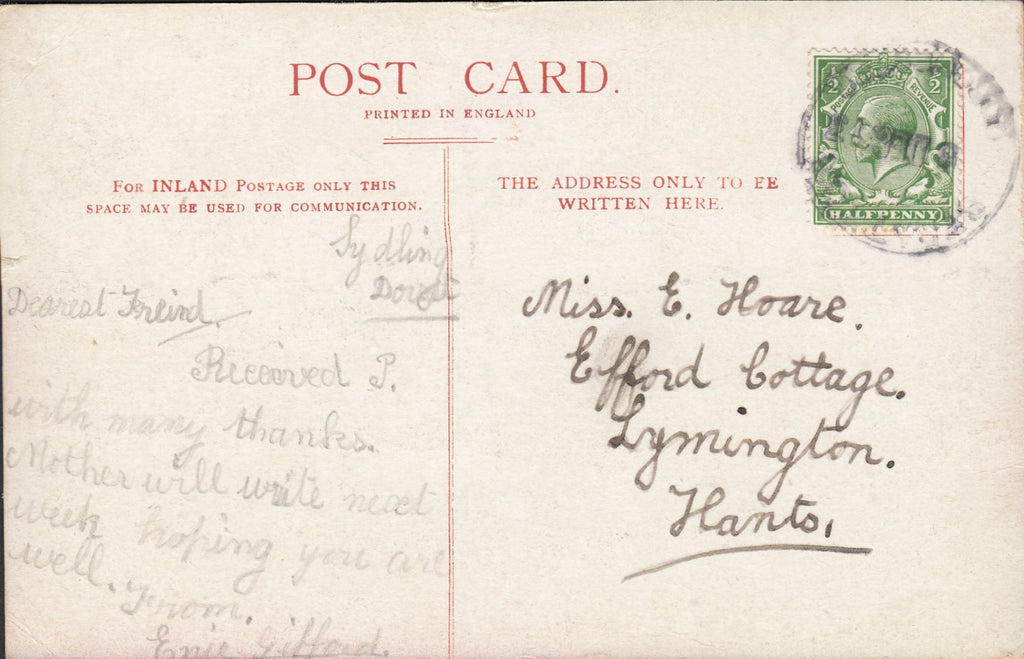 POST CARD.
PRINTED IN ENGLAND
FOR INLAND POSTAGE ONLY THIS
SPACE MAY BE USED FOR COMMUNICATION.
THE ADDRESS ONLY TO BE
WRITTEN HERE.
1/2 1/2
POSTAGE REVENUE
HALFPENNY
Sydling
Dorset
Dearest Freind.
Received P.
with many thanks.
Mother will write next
week hoping you are
well.
From.
Gifford.
Miss. E. Hoare.
Efford Cottage.
Lymington.
Hants.